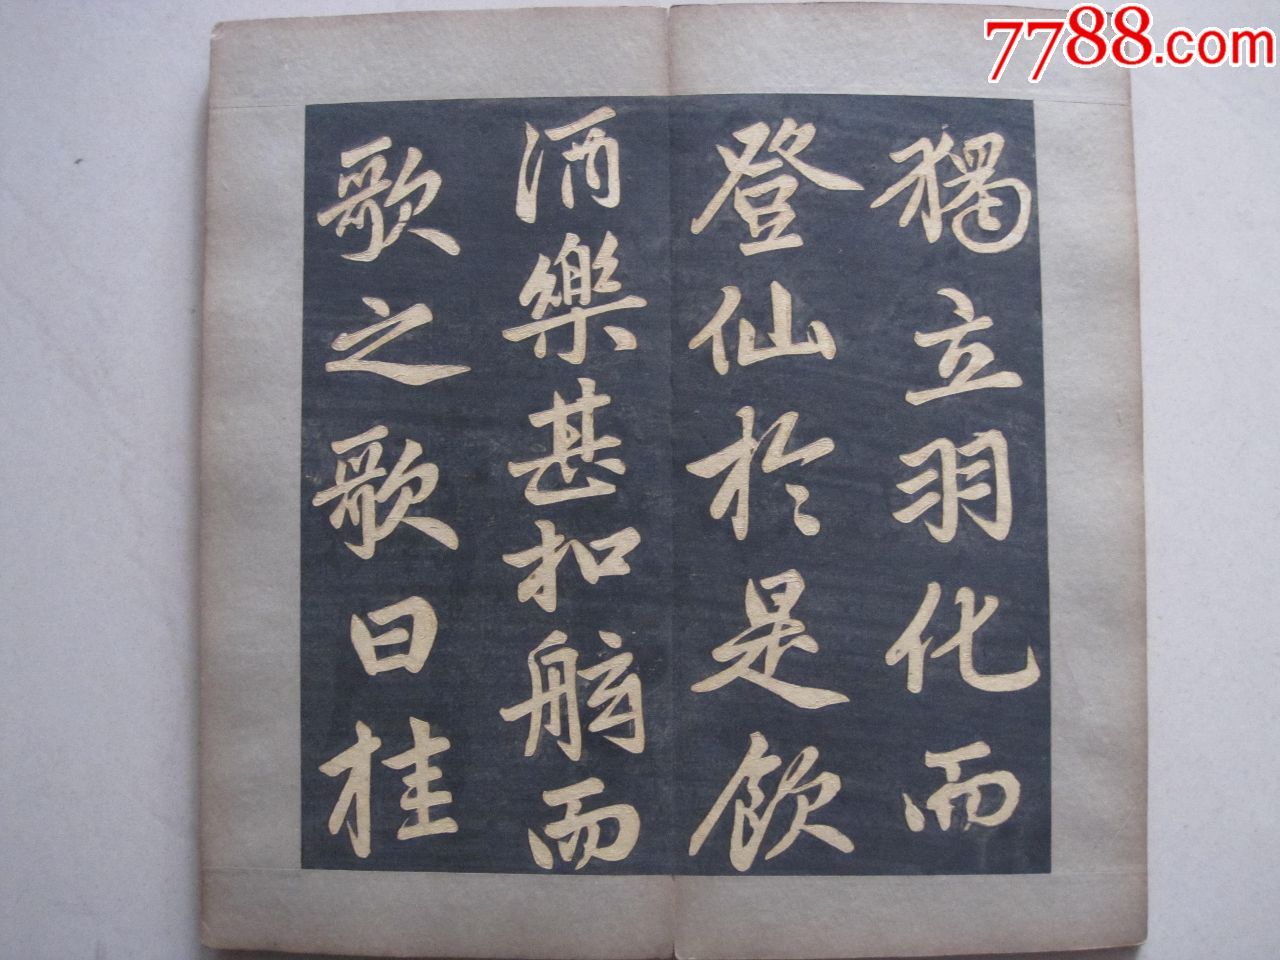 獨立羽化而
登仙於是飲
酒樂甚扣舷而
歌之歌曰桂
7788.com